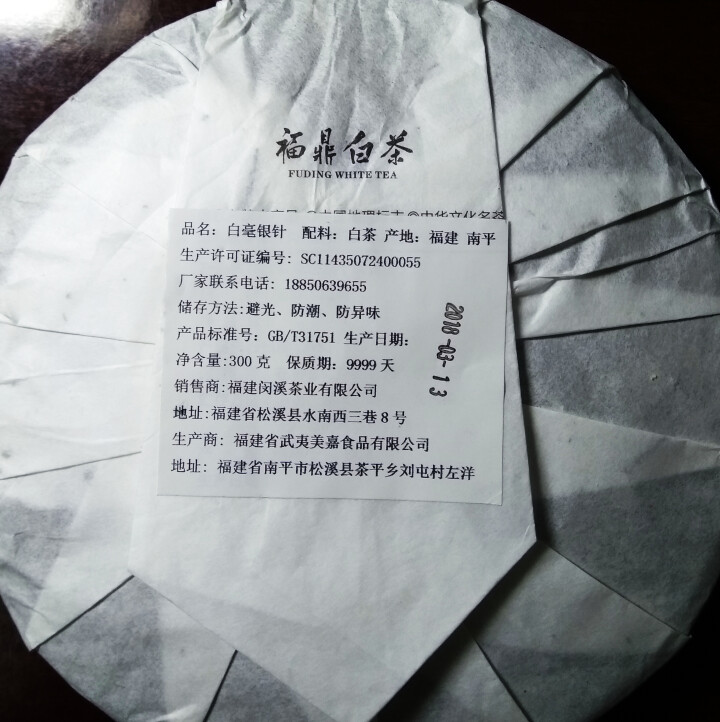 福鼎白茶
FUDING WHITE TEA
品名：白毫银针 配料：白茶 产地：福建 南平
生产许可证编号：SC11435072400055
厂家联系电话：18850639655
储存方法:避光、防潮、防异味
产品标准号：GB/T31751 生产日期：
2018-03-13
净含量:300克 保质期：9999天
销售商:福建闵溪茶业有限公司
地址:福建省松溪县水南西三巷8号
生产商：福建省武夷美嘉食品有限公司
地址：福建省南平市松溪县茶平乡刘屯村左洋